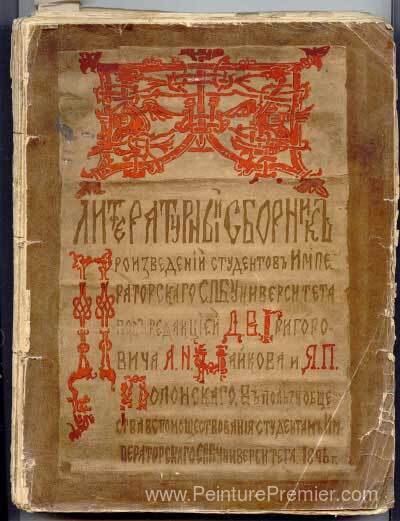 ЛИТЕРАТУРНЫЙ СБОРНИКЪ
ПРОИЗВЕДЕНІЙ СТУДЕНТОВЪ ИМПЕ
РАТОРСКАГО СПБ. УНИВЕРСИТЕТА
ПОДЪ РЕДАКЦІЕЙ Д.В. ГРИГОРО
ВИЧА А.Н. МАЙКОВА И Я.П.
ПОЛОНСКАГО. ВЪ ПОЛЬЗУ ОБЩЕ
СТВА ВСПОМОЩЕСТВОВАНІЯ СТУДЕНТАМЪ ИМ
ПЕРАТОРСКАГО СПБ. УНИВЕРСИТЕТА. 1896 г.
www.PeinturePremier.com